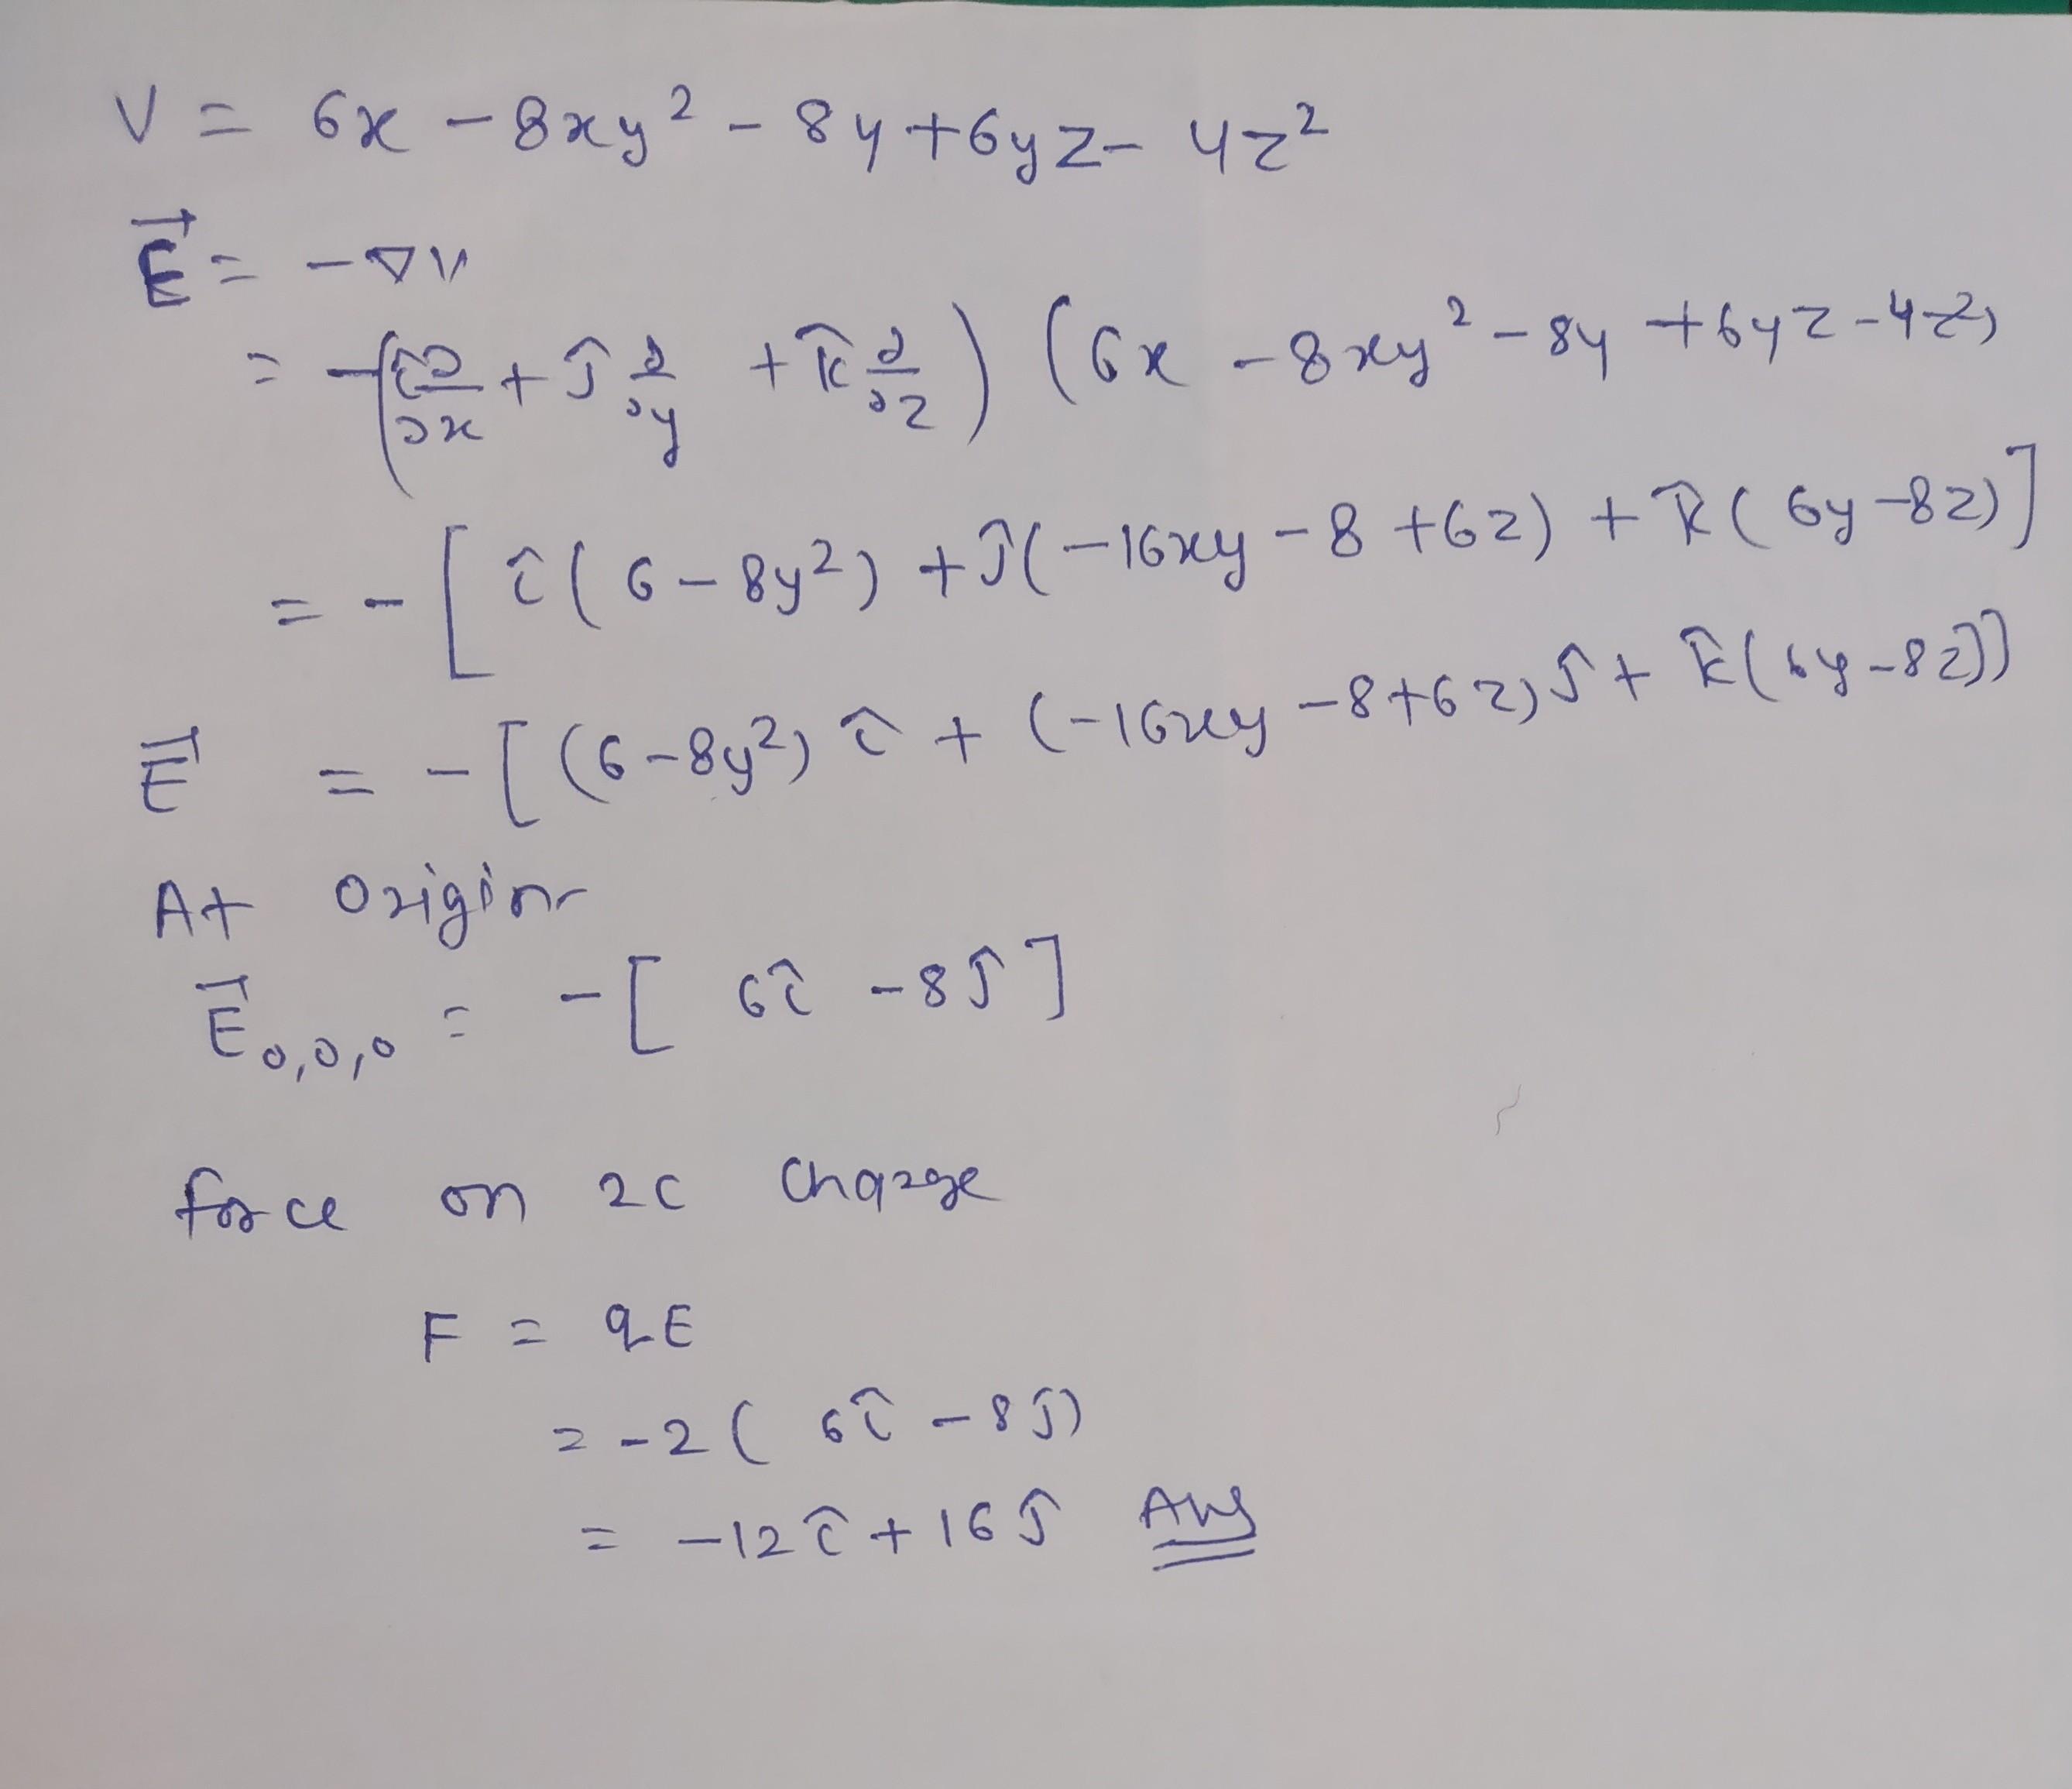 V = 6x - 8xy² - 8y + 6yz - 4z²
E⃗ = -∇V
= -(î ∂/∂x + ĵ ∂/∂y + k̂ ∂/∂z) (6x - 8xy² - 8y + 6yz - 4z²)
= -[î(6 - 8y²) + ĵ(-16xy - 8 + 6z) + k̂(6y - 8z)]
E⃗ = -[(6 - 8y²) î + (-16xy - 8 + 6z) ĵ + k̂(6y - 8z)]
At origin
E⃗₀,₀,₀ = -[6î - 8ĵ]
force on 2C charge
F = qE
= -2(6î - 8ĵ)
= -12î + 16ĵ Ans